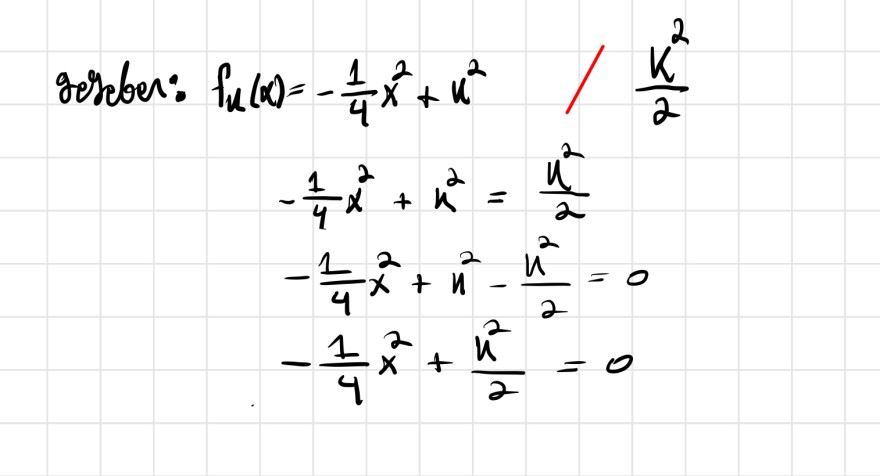 gegeben: fₖ(x) = -1/4 x² + k² / k²/2
-1/4 x² + k² = k²/2
-1/4 x² + k² - k²/2 = 0
-1/4 x² + k²/2 = 0